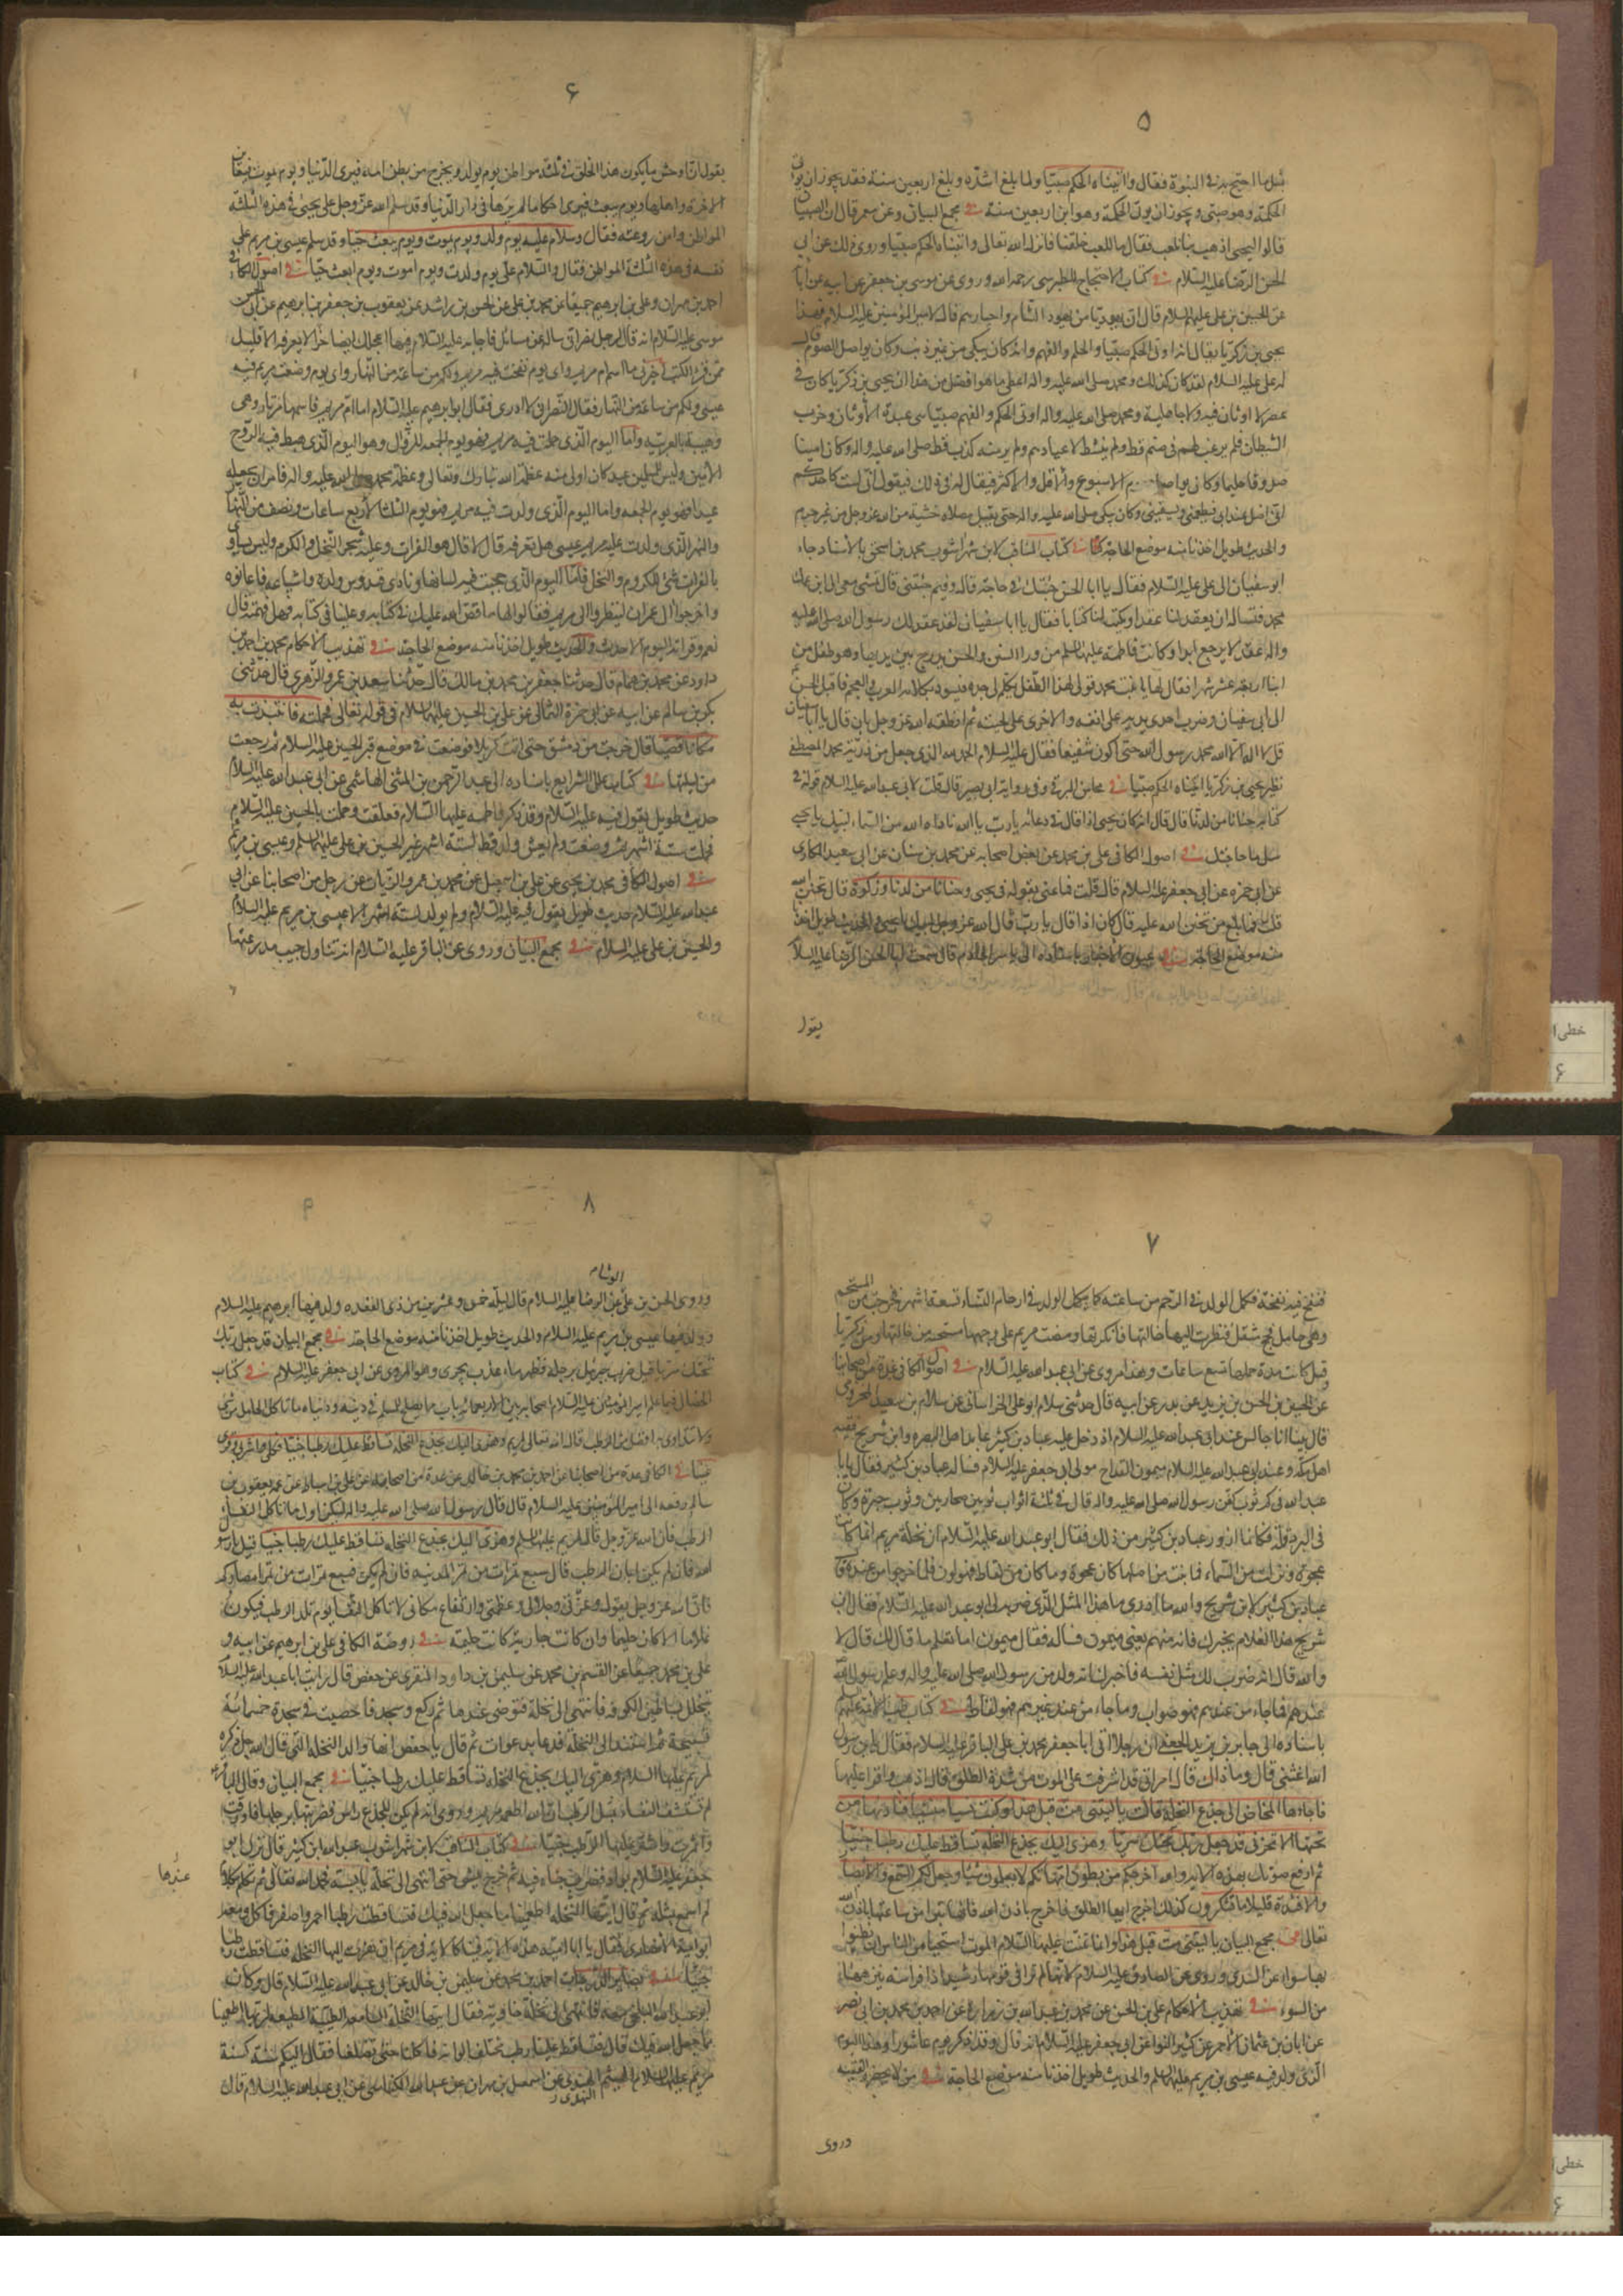 ۵
بمثل ما احتج به في النبوة فقال واتيناه الحكم صبيا ولما بلغ اشده وبلغ اربعين سنة فقد يجوز ان يؤتى
الحكمة وهو صبي ويجوز ان يؤتى الحكمة وهو ابن اربعين سنة في مجمع البيان وعن معمر قال ان الصبيان
قالوا ليحيى اذهب بنا نلعب فقال ما للعب خلقنا فانزل الله تعالى واتيناه الحكم صبيا وروى ذلك عن ابي
الحسن الرضا عليه السلام في كتاب الاحتجاج للطبرسي رحمه الله وروى عن موسى بن جعفر عن ابيه عن آبائه
عن الحسين بن علي عليهم السلام قال ان يهوديا من يهود الشام واحبارهم قال لامير المؤمنين عليه السلام فهذا
يحيى بن زكريا يقال انه اوتى الحكم صبيا والحلم والفهم وانه كان يبكي من غير ذنب وكان يواصل الصوم قال
له علي عليه السلام لقد كان كذلك ومحمد صلى الله عليه واله اعطى ما هو افضل من هذا ان يحيى بن زكريا كان في
عصر لا اوثان فيه ولا جاهلية ومحمد صلى الله عليه واله اوتى الحكم والفهم صبيا بين عبدة الاوثان وحزب
الشيطان فلم يرغب لهم في صنم قط ولم ينشط لاعيادهم ولم ير منه كذب قط صلى الله عليه واله وكان امينا
صدوقا حليما وكان يواصل صوم الاسبوع والاقل والاكثر فيقال له في ذلك فيقول اني لست كاحدكم
اني اظل عند ربي فيطعمني ويسقيني وكان يبكي صلى الله عليه واله حتى يبتل مصلاه خشية من الله عز وجل من غير جرم
والحديث طويل اخذنا منه موضع الحاجة في كتاب المناقب لابن شهراشوب محمد بن اسحق بالاسناد جاء
ابو سفيان الى علي عليه السلام فقال يا ابا الحسن جئتك في حاجة قال وفيم جئتني قال تمشي معي الى ابن عمك
محمد فتساله ان يعقد لنا عقدا ويكتب لنا كتابا فقال يا ابا سفيان لقد عقد لك رسول الله صلى الله عليه
واله عقدا لا يرجع ابدا وكانت فاطمة عليها السلام من وراء الستر والحسن يدرج بين يديها وهو طفل من
ابناء اربعة عشر شهرا فقال لها يا بنت محمد قولي لهذا الطفل يكلم لي جده فيسود بكلامه العرب والعجم فاقبل الحسن
الى ابي سفيان وضرب احدى يديه على انفه والاخرى على لحيته ثم انطقه الله عز وجل بان قال يا ابا سفيان
قل لا اله الا الله محمد رسول الله حتى اكون شفيعا فقال عليه السلام الحمد لله الذي جعل من ذرية محمد المصطفى
نظير يحيى بن زكريا اتيناه الحكم صبيا في محاسن البرقي وفي رواية ابي بصير قال قلت لابي عبد الله عليه السلام قوله في
كتابه حنانا من لدنا قال انه كان يحيى اذا قال في دعائه يا رب يا الله ناداه الله من السماء لبيك يا يحيى
سل ما حاجتك في اصول الكافي علي بن محمد عن بعض اصحابه عن محمد بن سنان عن ابي سعيد المكاري
عن ابي حمزة عن ابي جعفر عليه السلام قال قلت فما عنى بقوله في يحيى وحنانا من لدنا وزكوة قال تحنن الله
قلت فما بلغ من تحنن الله عليه قال كان اذا قال يا رب قال الله عز وجل لبيك يا يحيى والحديث طويل اخذنا
منه موضع الحاجة في عيون الاخبار باسناده الى ياسر الخادم قال سمعت ابا الحسن الرضا عليه السلام
يقول
۶
يقول ان اوحش ما يكون هذا الخلق في ثلثة مواطن يوم يولد ويخرج من بطن امه فيرى الدنيا ويوم يموت فيعاين
الاخرة واهلها ويوم يبعث فيرى احكاما لم يرها في دار الدنيا وقد سلم الله عز وجل على يحيى في هذه الثلثة
المواطن وامن روعته فقال وسلام عليه يوم ولد ويوم يموت ويوم يبعث حيا وقد سلم عيسى بن مريم على
نفسه في هذه الثلثة المواطن فقال والسلام علي يوم ولدت ويوم اموت ويوم ابعث حيا في اصول الكافي
احمد بن مهران وعلي بن ابرهيم جميعا عن محمد بن علي عن الحسن بن راشد عن يعقوب بن جعفر بن ابرهيم عن ابي الحسن
موسى عليه السلام انه قال لرجل نصراني ساله عن مسائل فاجابه عليه السلام فيها اعجلك ايضا خبرا لا يعرفه الا قليل
ممن قرء الكتب اخبرني ما اسم ام مريم واي يوم نفخت فيه مريم ولكم من ساعة من النهار واي يوم وضعت مريم فيه
عيسى ولكم من ساعة من النهار فقال النصراني لا ادري فقال ابو ابرهيم عليه السلام اما ام مريم فاسمها مرتار وهي
وهيبة بالعربية واما اليوم الذي حملت فيه مريم فهو يوم الجمعة للزوال وهو اليوم الذي هبط فيه الروح
الامين وليس للمسلمين عيد كان اولى منه عظمه الله تبارك وتعالى وعظمه محمد صلى الله عليه واله فامر ان يجعله
عيدا فهو يوم الجمعة واما اليوم الذي ولدت فيه مريم فهو يوم الثلثا لاربع ساعات ونصف من النهار
والنهر الذي ولدت عليه مريم عيسى هل تعرفه قال لا قال هو الفرات وعليه شجر النخل والكرم وليس يساوي
بالفرات شئ للكروم والنخل فاما اليوم الذي حجبت فيه لسانها ونادى قيدوس ولده واشياعه فاعانوه
واخرجوا آل عمران لينظروا الى مريم فقالوا لها ما قص الله عليك في كتابه وعلينا في كتابه فهل فهمته قال
نعم وقراته اليوم الاحدث والحديث طويل اخذنا منه موضع الحاجة في تهذيب الاحكام محمد بن احمد بن
داود عن محمد بن همام قال حدثنا جعفر بن محمد بن مالك قال حدثنا سعد بن عمرو الزهري قال حدثني
بكر بن سالم عن ابيه عن ابي حمزة الثمالي عن علي بن الحسين عليهما السلام في قوله تعالى فحملته فانتبذت به
مكانا قصيا قال خرجت من دمشق حتى اتت كربلا فوضعت في موضع قبر الحسين عليه السلام ثم رجعت
من ليلتها في كتاب علل الشرايع باسناده الى عبد الرحمن بن المثنى الهاشمي عن ابي عبد الله عليه السلام
حديث طويل يقول فيه عليه السلام وقد ذكر فاطمة عليها السلام فعلقت وحملت بالحسين عليه السلام
فحملت ستة اشهر ثم وضعت ولم يعش ولد قط لستة اشهر غير الحسين بن علي عليهما السلام وعيسى بن مريم
في اصول الكافي محمد بن يحيى عن علي بن اسمعيل عن محمد بن عمرو الزيات عن رجل من اصحابنا عن ابي
عبد الله عليه السلام حديث طويل يقول فيه عليه السلام ولم يولد لستة اشهر الا عيسى بن مريم عليه السلام
والحسين بن علي عليه السلام في مجمع البيان وروى عن الباقر عليه السلام انه تناول جيب مدرعتها
۷
فنفخ فيه نفخة فكمل الولد في الرحم من ساعته كما يكمل الولد في ارحام النساء تسعة اشهر فخرجت من المستحم
وهي حامل مثقل فنظرت اليها خالتها فانكرتها ومضت مريم على وجهها مستحية من خالتها ومن زكريا
قيل كانت مدة حملها تسع ساعات وهذا مروى عن ابي عبد الله عليه السلام في اصول الكافي عدة من اصحابنا
عن الحسين بن الحسن بن يزيد عن بدر عن ابيه قال حدثني سلام ابو علي الخراساني عن سلام بن سعيد المخزومي
قال بينا انا جالس عند ابي عبد الله عليه السلام اذ دخل عليه عباد بن كثير عابد اهل البصرة وابن شريح فقيه
اهل مكة وعند ابي عبد الله عليه السلام ميمون القداح مولى ابي جعفر عليه السلام فساله عباد بن كثير فقال يا ابا
عبد الله في كم ثوب كفن رسول الله صلى الله عليه واله قال في ثلثة اثواب ثوبين صحاريين وثوب حبرة وكان
في البرد قلة فكانما ازور عباد بن كثير من ذلك فقال ابو عبد الله عليه السلام ان نخلة مريم انما كانت
عجوة ونزلت من السماء فما نبت من اصلها كان عجوة وما كان من لقاط فهو لون فلما خرجوا من عنده قال
عباد بن كثير لابن شريح والله ما ادري ما هذا المثل الذي ضربه لي ابو عبد الله عليه السلام فقال ابن
شريح هذا الغلام يخبرك فانه منهم يعني ميمون فساله فقال ميمون اما تعلم ما قال لك قال لا
والله قال انه ضرب لك مثل نفسه فاخبرك انه ولد من رسول الله صلى الله عليه واله وعلم رسول الله
عندهم فما جاء من عندهم فهو صواب وما جاء من عند غيرهم فهو لقاط في كتاب طب الائمة عليهم السلام
باسناده الى جابر بن يزيد الجعفي ان رجلا اتى ابا جعفر محمد بن علي الباقر عليه السلام فقال يا ابن رسول
الله اغثني قال وما ذاك قال امراتي قد اشرفت على الموت من شدة الطلق قال اذهب واقرا عليها
فاجاءها المخاض الى جذع النخلة قالت يا ليتني مت قبل هذا وكنت نسيا منسيا فناديها من
تحتها الا تحزني قد جعل ربك تحتك سريا وهزي اليك بجذع النخلة تساقط عليك رطبا جنيا
ثم ارفع صوتك بهذه الاية والله اخرجكم من بطون امهاتكم لا تعلمون شيئا وجعل لكم السمع والابصار
والافئدة قليلا ما تشكرون كذلك اخرج ايها الطلق اخرج باذن الله فانها تبرا من ساعتها باذن الله
تعالى في مجمع البيان يا ليتني مت قبل هذا وانما تمنت عليها السلام الموت استحياء من الناس ان يظنوا
بها سوء عن السدي وروى عن الصادق عليه السلام لانها لم تر في قومها رشيدا ذا فراسة ينزهها
من السوء في تهذيب الاحكام علي بن الحسن عن محمد بن عبد الله بن زرارة عن احمد بن محمد بن ابي نصر
عن ابان بن عثمان الاحمر عن كثير النوا عن ابي جعفر عليه السلام انه قال وقد ذكر يوم عاشورا وهذا اليوم
الذي ولد فيه عيسى بن مريم عليه السلام والحديث طويل اخذنا منه موضع الحاجة في من لا يحضره الفقيه
وروى
۸
الوشاء
وروى الحسن بن علي عن الرضا عليه السلام قال ليلة خمس وعشرين من ذي القعدة ولد فيها ابرهيم عليه السلام
وولد فيها عيسى بن مريم عليه السلام والحديث طويل اخذنا منه موضع الحاجة في مجمع البيان قد جعل ربك
تحتك سريا قيل ضرب جبرئيل برجله فظهر ماء عذب يجري وهو المروى عن ابي جعفر عليه السلام في كتاب
الخصال فيما علم امير المؤمنين عليه السلام اصحابه من الاربعمائة باب مما يصلح للمسلم في دينه ودنياه ما تاكل الحامل من شئ
ولا تتداوى به افضل من الرطب قال الله تعالى لمريم وهزي اليك بجذع النخلة تساقط عليك رطبا جنيا فكلي واشربي وقري
عينا في الكافي عدة من اصحابنا عن احمد بن محمد بن خالد عن عدة من اصحابه عن علي بن اسباط عن عمه يعقوب بن
سالم رفعه الى امير المؤمنين عليه السلام قال قال رسول الله صلى الله عليه واله ليكن اول ما تاكل النفساء
الرطب فان الله عز وجل قال لمريم عليها السلام وهزي اليك بجذع النخلة تساقط عليك رطبا جنيا قيل يا رسول
الله فان لم يكن ابان الرطب قال سبع تمرات من تمر المدينة فان لم يكن فسبع تمرات من تمر امصاركم
فان الله عز وجل يقول وعزتي وجلالي وعظمتي وارتفاع مكاني لا تاكل النفساء يوم تلد الرطب فيكون
غلاما الا كان حليما وان كانت جارية كانت حليمة في روضة الكافي علي بن ابرهيم عن ابيه و
علي بن محمد جميعا عن القسم بن محمد عن سليمن بن داود المنقري عن حفص قال رايت ابا عبد الله عليه السلام
يتخلل بساتين الكوفة فانتهى الى نخلة فتوضى عندها ثم ركع وسجد فاحصيت في سجدة خمسمائة
تسبيحة ثم استند الى النخلة فدعا بدعوات ثم قال يا حفص انها والله النخلة التي قال الله جل ذكره
لمريم عليها السلام وهزي اليك بجذع النخلة تساقط عليك رطبا جنيا في مجمع البيان وقال الباقر
لم تستشف النفساء بمثل الرطب ان الله اطعمه مريم وروى انه لم يكن للجذع راس فضربته برجلها فاورقت
واثمرت وانتثر عليها الرطب جنيا في كتاب المناقب لابن شهراشوب عبد الله بن كثير قال نزل ابو
جعفر عليه السلام بواد فضرب خباه فيه ثم خرج يمشي حتى انتهى الى نخلة يابسة فحمد الله تعالى ثم تكلم بكلام
عندها
لم اسمع بمثله ثم قال ايتها النخلة اطعمينا مما جعل الله فيك فتساقطت رطبا احمر واصفر فاكل ومعه
ابو امية الانصاري فقال يا ابا امية هذه الاية فينا كالاية في مريم اذ هزت اليها النخلة فتساقطت رطبا
جنيا في بصاير الدرجات احمد بن محمد عن سليمن بن خالد عن ابي عبد الله عليه السلام قال وكان
ابو عبد الله البلخي معه فانتهى الى نخلة خاوية فقال ايتها النخلة السامعة الطيبة المطيعة لربها اطعمينا
مما جعل الله فيك قال فتساقط علينا رطب مختلف الوانه فاكلنا حتى تضلعنا فقال اليكم سنة كسنة
مريم عليها السلام الهيثم النهدي عن اسمعيل بن مهران عن عبد الله الكناسي عن ابي عبد الله عليه السلام قال
النهدي